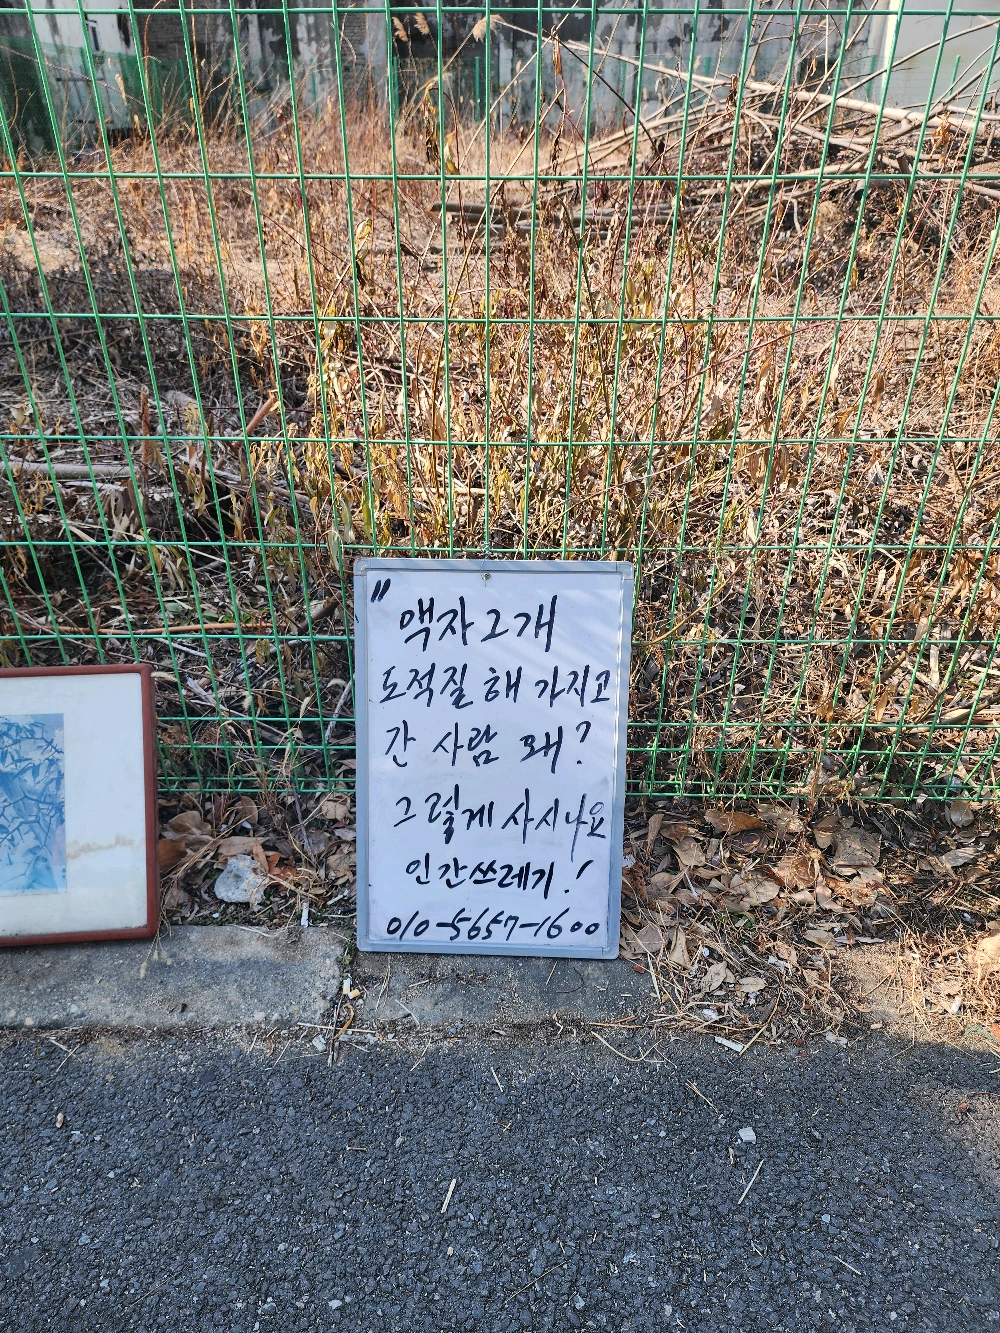 " 액자 2개
도적질 해 가지고
간 사람 왜?
그렇게 사시나요
인간쓰레기.!
010-5657-1600